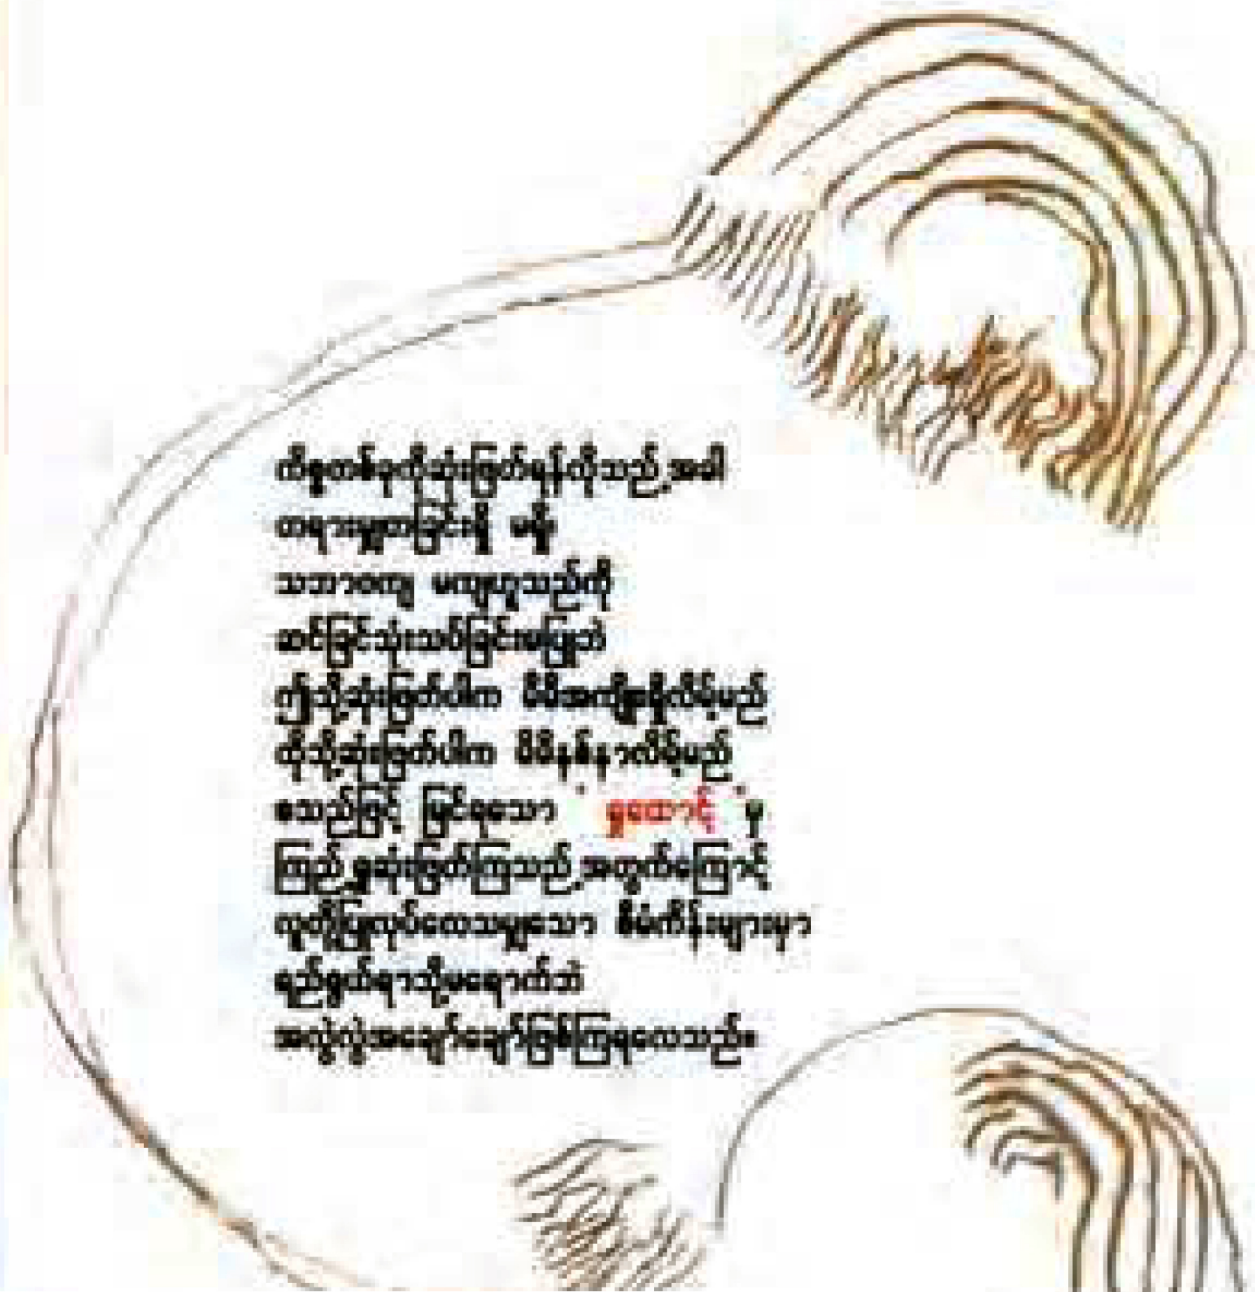 ကိစ္စတစ်ခုကိုဆုံးဖြတ်ရန်လိုသည့်အခါ
တရားမျှတခြင်းရှိ မရှိ၊
သဘာဝကျ မကျဟူသည်ကို
ဆင်ခြင်သုံးသပ်ခြင်းမပြုဘဲ
ဤသို့ဆုံးဖြတ်ပါက မိမိအကျိုးရှိလိမ့်မည်
ထိုသို့ဆုံးဖြတ်ပါက မိမိနစ်နာလိမ့်မည်
စသည်ဖြင့် မြင်ရသော " ရှုထောင့် "မှ
ကြည့်ရှုဆုံးဖြတ်ကြသည့်အတွက်ကြောင့်
လူတို့ပြုလုပ်လေသမျှသော စီမံကိန်းများမှာ
ရည်ရွယ်ရာသို့မရောက်ဘဲ
အလွဲလွဲအချော်ချော်ဖြစ်ကြရလေသည်။